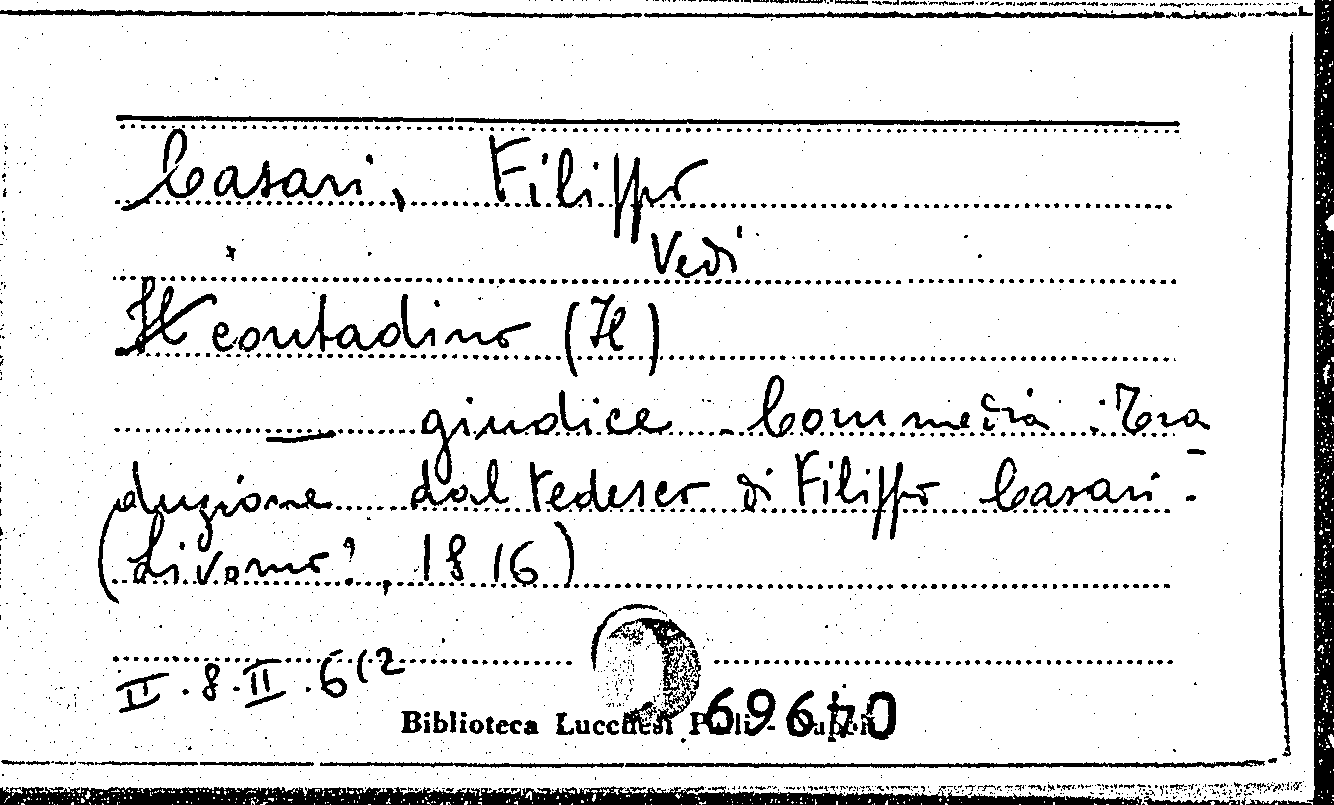 Casari, Filippo
Vedi
Il contadino (Il)
— giudice - Commedia. Tra
duzione dal tedesco di Filippo Casari.
(Livorno?, 1816)
II.8.II.6(2
Biblioteca Lucchesi Palli - Napoli
69640